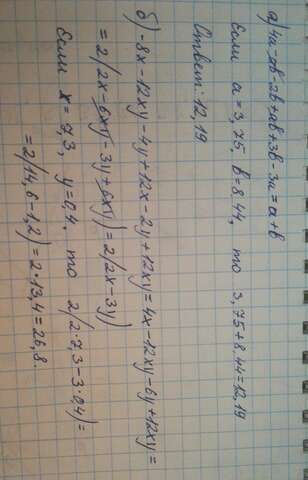 а) 4a-ab-2b+ab+3b-3a=a+b
Если a=3,75, b=8,44, то 3,75+8,44=12,19
Ответ: 12,19
б) -8x-12xy-4y+12x-2y+12xy=4x-12xy-6y+12xy=
=2(2x-6xy-3y+6xy)=2(2x-3y)
Если x=7,3, y=0,4, то 2(2·7,3-3·0,4)=
=2(14,6-1,2)=2·13,4=26,8.